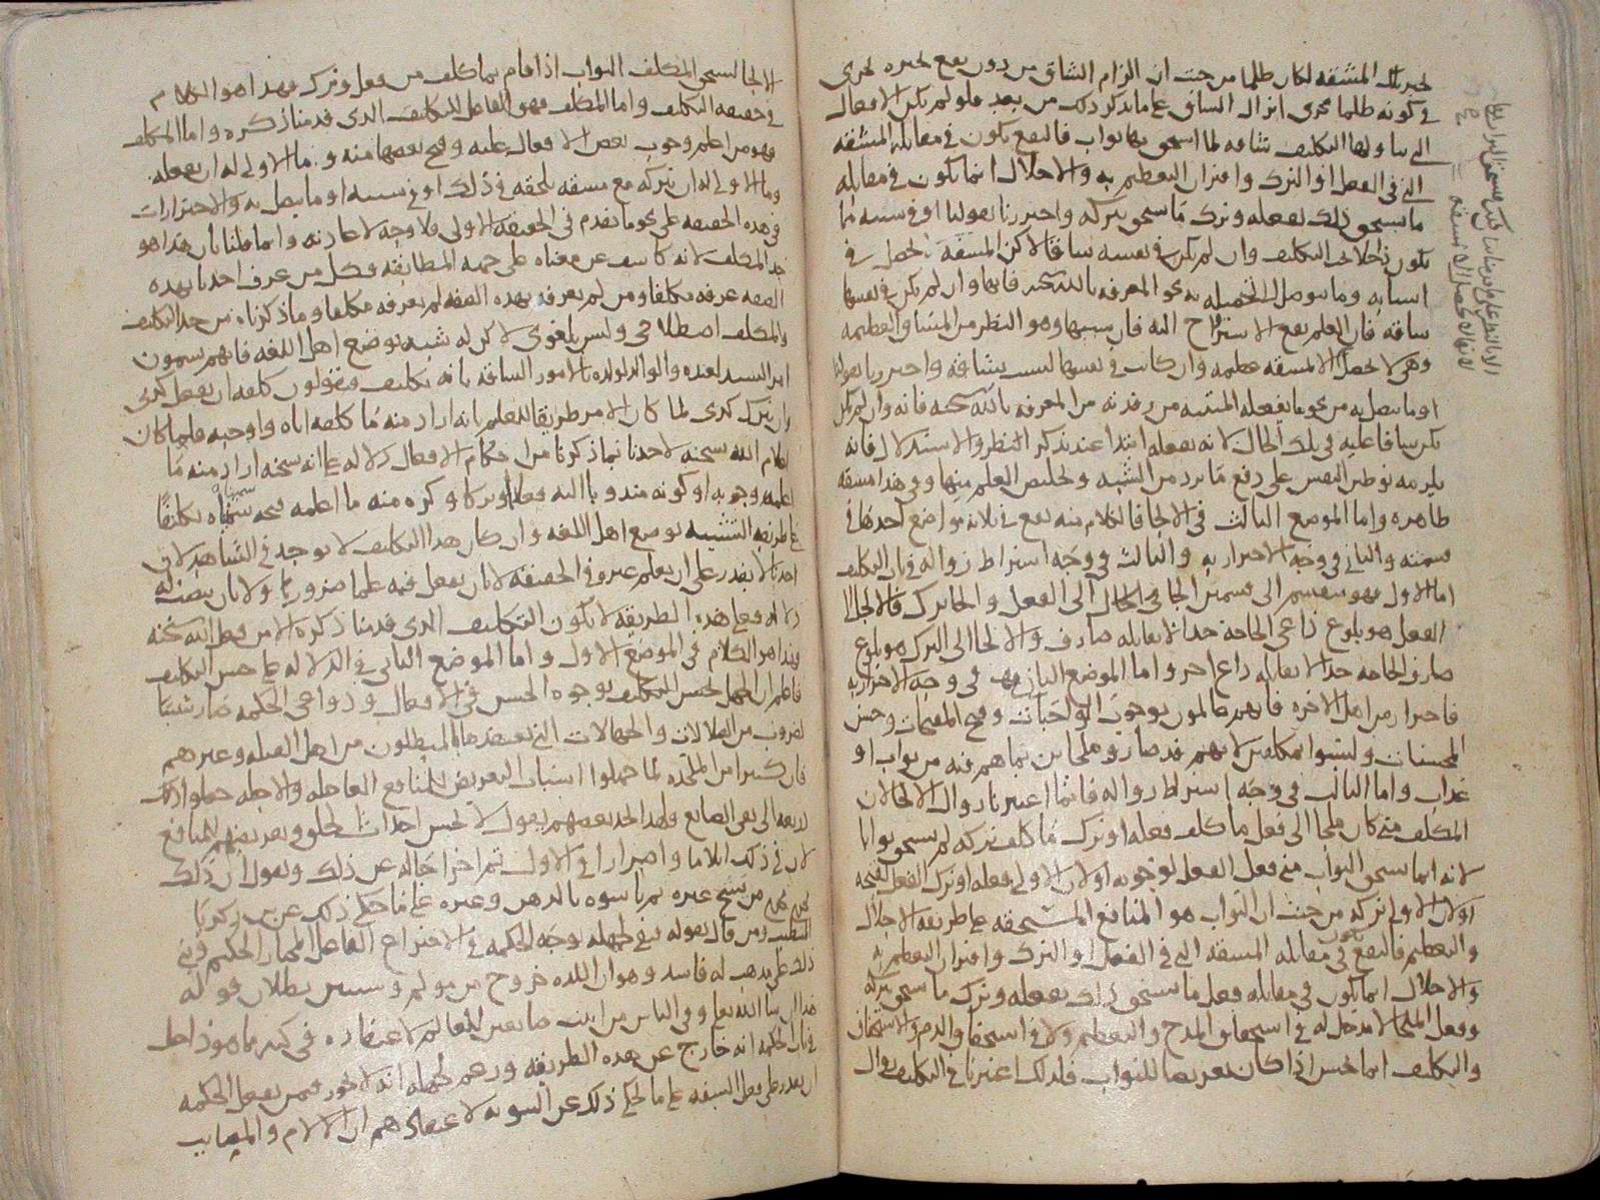 لتحمل تلك المشقه لكان ظلما من حيث ان الزام الشاق من دون نفع يجبره يجري
في كونه ظلما مجرى انزال الشاق على ما يذكر ذلك من بعد فلو لم تكن الافعال
التي يتناولها التكليف شاقه لما استحق بها ثواب فالنفع يكون في مقابله المشقه
التي في الفعل او الترك واقتران التعظيم به والاجلال انما يكون في مقابله
ما يستحق ذلك بفعله وترك ما يستحق بتركه واحترزنا بقولنا او في سببه مما
يكون داخلا في التكليف وان لم يكن في نفسه شاقا لاكن المشقه تحصل في
اسبابه وما يتوصل الى تحصيله به نحو المعرفه بالله سبحنه فانها وان لم تكن في نفسها
شاقه فان العلم يقع الاستراح اليه فان سببها وهو النظر من المشاق العظيمه
وهي لا تحصل الا بمشقه عظيمه وان كانت في نفسها ليست بشاقه واحترزنا بقولنا
او ما يتصل به من نحو ما يفعله المنتبه من رقدته من المعرفه بالله سبحنه فانه وان لم يكن
يكن شاقا عليه في تلك الحال لانه يفعله ابتدا عند تذكر النظر والاستدلال فانه
يلزمه توطين النفس على دفع ما يرد من الشبه وتخليص العلم منها وفي هذا مشقه
ظاهره واما الموضع الثالث في الالجا فالكلام منه يقع في ثلاثه مواضع احدها في
قسمته والثاني في وجه الاحتراز به والثالث في وجه اشتراط زواله في باب التكليف
اما الاول فهو ينقسم الى قسمين الجا الى الفعل والجا الى الترك فالالجا الى
الفعل هو بلوغ داعي الحاجه حدا لا يقابله صارف والالجا الى الترك هو بلوغ
صارف الحاجه حدا لا يقابله داع اخر واما الموضع الثاني وهو في وجه الاحتراز به
فاحتراز من اهل الاخره فانهم عالمون بوجوب الواجبات وقبح المقبحات وحسن
المحسنات وليسوا بمكلفين لانهم قد صاروا ملجايين بما هم فيه من ثواب او
عذاب واما الثالث في وجه اشتراط زواله فانما اعتبرنا زوال الالجا لان
المكلف متى كان ملجا الى فعل ما كلف فعله او ترك ما كلف تركه لم يستحق ثوابا
لانه انما يستحق الثواب متى فعل الفعل لوجوبه او لان الاولى فعله او ترك الفعل لقبحه
او لان الاولى تركه من حيث ان الثواب هو المنافع المستحقه على طريقه الاجلال
والتعظيم فالنفع يكون في مقابله المشقه التي في الفعل او الترك واقتران التعظيم به
والاجلال انما يكون في مقابله فعل ما يستحق ذلك بفعله وترك ما يستحق بتركه
وفعل الملجا لا مدخل له في استحقاق المدح والتعظيم ولا في استحقاق الذم والاستخفاف
والتكليف انما يحسن اذا كان تعريضا للثواب فلذلك اعتبرنا في التكليف زوال
الالجا ليستحق المكلف الثواب اذا قام بما كلف من فعل وترك فهذا هو الكلام
في حقيقه التكليف واما المكلف فهو الفاعل للتكليف الذي قدمنا ذكره واما المكلف
فهو من اعلم وجوب بعض الافعال عليه وقبح بعضها منه وما الاولى له ان يفعله
وما الاولى له ان يتركه مع مشقه تلحقه في ذلك او في سببه او ما يتصل به والاحترازات
في هذه الحقيقه على نحو ما تقدم في الحقيقه الاولى فلا وجه لاعادته وانما قلنا بان هذا هو
حد المكلف لانه كاشف عن معناه على جهه المطابقه فكل من عرف احدنا بهذه
الصفه عرفه مكلفا ومن لم يعرفه بهذه الصفه لم يعرفه مكلفا وما ذكرناه من حد التكليف
والمكلف اصطلاحي وليس بلغوي لاكن له شبه بوضع اهل اللغه فانهم يسمون
امر السيد لعبده والوالد لولده بالامور الشاقه بانه تكليف ويقولون كلفه ان يفعل كذى
وان يترك كذى لما كان الامر طريقا للعلم بانه اراد منه ما كلفه اياه واوجبه فلما كان
اعلام الله سبحنه لاحدنا بما ذكرنا من احكام الافعال دلاله على انه سبحنه اراد منه ما
اعلمه وجوبه او كونه مندوبا اليه فعلا او تركا وكره منه ما اعلمه قبحه سميناه تكليفا
على طريقه التشبيه بوضع اهل اللغه وان كان هذا التكليف لا يوجد في الشاهد لان
احدنا لا يقدر على ان يعلم غيره في الحقيقه لا بان يفعل فيه علما ضروريا ولا بان ينصب له
دلاله فعلى هذه الطريقه لا يكون التكليف الذي قدمنا ذكره الا من فعل الله سبحنه
فهذا هو الكلام في الموضع الاول واما الموضع الثاني في الدلاله على حسن التكليف
فاعلم ان الجهل بحسن التكليف بوجوه الحسن في الافعال ودواعي الحكمه صار سببا
لضروب من الضلالات والجهالات التي يعتقدها المبطلون من اهل القبله وغيرهم
فان كثيرا من الملحده لما جهلوا اسباب التعريض للمنافع العاجله والاجله جعلوا ذلك
ذريعه الى نفي الصانع ولهذا تجد بعضهم يقول لا يحسن احداث الخلق وتعريضهم للمنافع
لان في ذلك ايلاما واضرارا في الاول ثم اخراجا له عن ذلك ويقول ان ذلك
من يتيح غيره ثم ياسوه بالدهن وغيره على ما حكي ذلك عن بن زكريا
المتطبب ومن قال بقوله فنفى لجهله بوجه الحكمه في الاختراع الفاعل المختار الحكيم وبنى
ذلك على مذهب له فاسد وهو ان اللذه خروج من مولم وسنبين بطلان قوله
هذا ان شا الله تعلى وفي الناس من اثبت صانعين للعالم لاعتقاده في كثير مما هو داخل
في باب الحكمه انه خارج عن هذه الطريقه وزعم لجهله انه لا يجوز ممن يفعل الحكمه
ان يقدر على فعل السفه على ما يحكى ذلك عن الثنويه لاعتقادهم ان الالام والمصايب